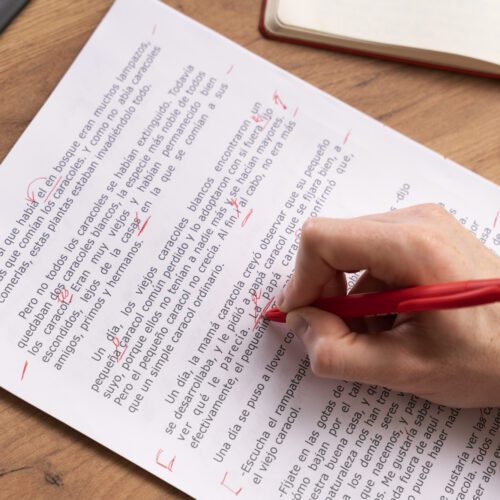 sí que había el en bosque eran muchos lampazos,
que comían los caracoles. Y como no abía caracoles
comerlas, estas plantas estaban invadiéndolo todo.
Pero no todos los caracoles se habían extinguido. Todavía
quedaban dos caracoles blancos, la especie más noble de todos
los caracol. Eran muy viejos y habían permanecido bien
escondidos, lejos de la casas en la que se comían a sus
amigos, primos y hermanos.
Un día, los viejos caracoles blancos encontraron un
pequeña caracol común perdido y lo adoptaron con si fuera
suyo, porque ellos no tenían a nadie más y se hacían mayores.
Pero el pequeño caracol no crecía. Al fin y al cabo, no era más
que un simple caracol ordinario.
Un día, la mamá caracola creyó observar que su pequeño
se desarrollaba, y le pidió a papá caracol que se fijara bien, a
ver qué le parecía. La papá caracol confirmó que,
efectivamente, el pequeño
Una día se puso a llover
-Escucha el rampataplá -dijo
el viejo caracol.
-fíjate en las gotas de
cómo bajan por el
nuestra buena casa, y
naturaleza nos han
los demás seres
que hacemos, y
más. Me gustaría
la fuera de aquí
puede haber nada
gustaría ver las
Todos